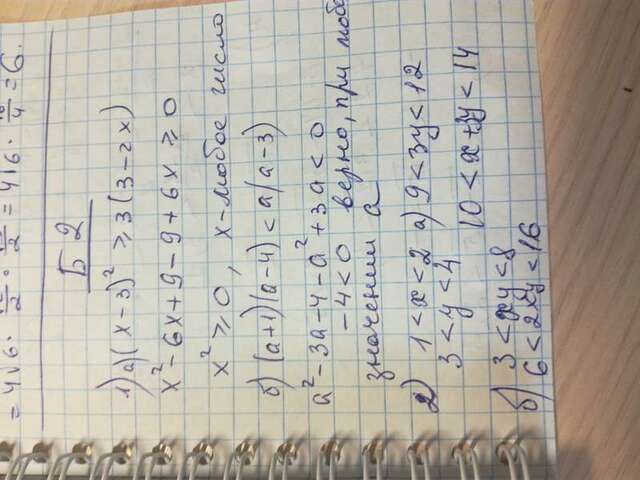 = 4√6 · · = 4√6 · = 6.
Б 2
1) а) (x-3)² ≥ 3(3-2x)
x² - 6x + 9 - 9 + 6x ≥ 0
x² ≥ 0, x - любое число
б) (a+1)(a-4) < a(a-3)
a² - 3a - 4 - a² + 3a < 0
-4 < 0 верно, при любо
значении a
2) 1 < x < 2 а) 9 < 3y < 12
3 < y < 4 10 < x + 3y < 14
б) 3 < xy < 8
6 < 2xy < 16